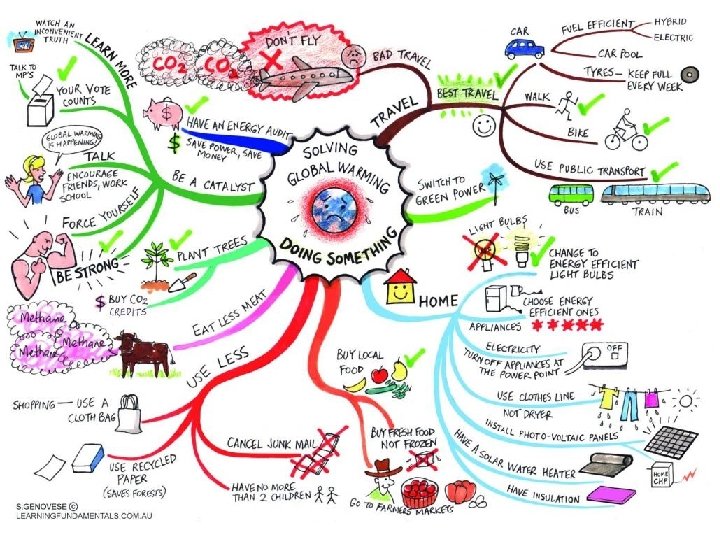 SOLVING
GLOBAL WARMING
DOING SOMETHING
TRAVEL
BAD TRAVEL
DON'T FLY
CO2
CO2
BEST TRAVEL
CAR
FUEL EFFICIENT
HYBRID
ELECTRIC
CAR POOL
TYRES - KEEP FULL
EVERY WEEK
WALK
BIKE
USE PUBLIC TRANSPORT
BUS
TRAIN
SWITCH TO
GREEN POWER
HOME
LIGHT BULBS
CHANGE TO
ENERGY EFFICIENT
LIGHT BULBS
CHOOSE ENERGY
EFFICIENT ONES
APPLIANCES
ELECTRICITY
OFF
TURN OFF APPLIANCES AT
THE POWER POINT
USE CLOTHES LINE
NOT DRYER
INSTALL PHOTO-VOLTAIC PANELS
HAVE A SOLAR WATER HEATER
HOME
CHP
HAVE INSULATION
BUY LOCAL
FOOD
BUY FRESH FOOD
NOT FROZEN
GO TO FARMERS MARKETS
USE LESS
SHOPPING - USE A
CLOTH BAG
USE RECYCLED
PAPER
(SAVES FORESTS)
CANCEL JUNK MAIL
HAVE NO MORE
THAN 2 CHILDREN
EAT LESS MEAT
Methane
Methane
Methane
PLANT TREES
$ BUY CO2
CREDITS
BE A CATALYST
LEARN MORE
WATCH AN
INCONVENIENT
TRUTH
TALK TO
MP'S
YOUR VOTE
COUNTS
GLOBAL WARMING
IS HAPPENING!
TALK
ENCOURAGE
FRIENDS, WORK
SCHOOL
FORCE YOURSELF
BE STRONG
HAVE AN ENERGY AUDIT
$ SAVE POWER, SAVE
MONEY
S.GENOVESE ©
LEARNINGFUNDAMENTALS.COM.AU